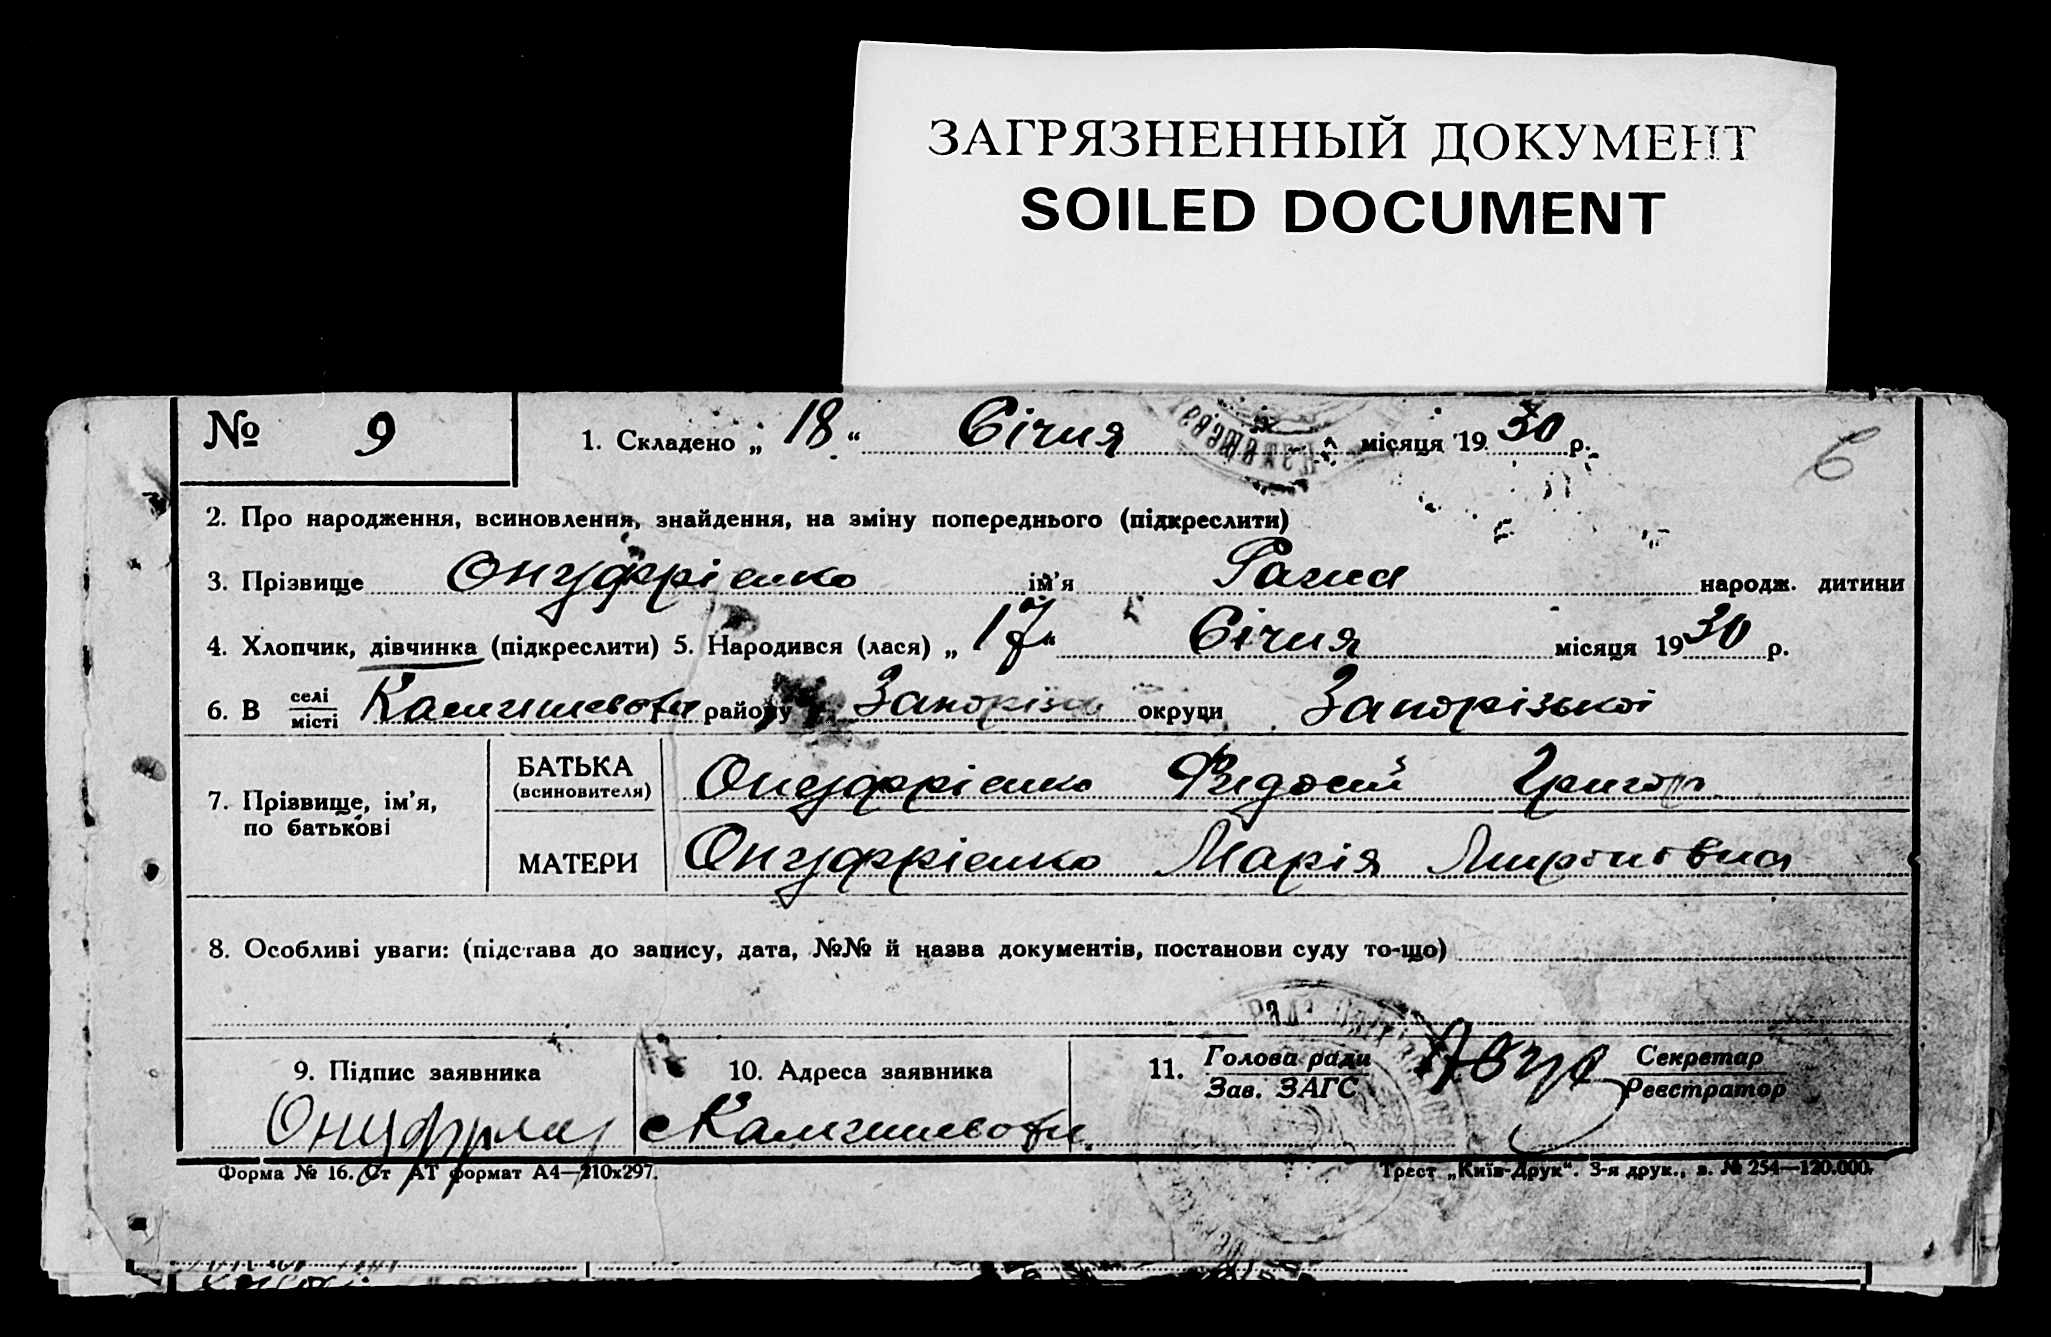 ЗАГРЯЗНЕННЫЙ ДОКУМЕНТ
SOILED DOCUMENT
№ 9
1. Складено „ 18 “ Січня місяця 1930 р.
6
2. Про народження, всиновлення, знайдення, на зміну попереднього (підкреслити)
3. Прізвище Онуфрієнко ім’я Раиса народж. дитини
4. Хлопчик, дівчинка (підкреслити) 5. Народився (лася) „ 17 “ Січня місяця 1930 р.
6. В селі місті Камишеваха району Запоріз округи Запорізької
7. Прізвище, ім’я, по батькові
БАТЬКА (всиновителя) Онуфрієнко Федосій Григор
МАТЕРИ Онуфрієнко Марія Мироновна
8. Особливі уваги: (підстава до запису, дата, №№ й назва документів, постанови суду то-що)
9. Підпис заявника
10. Адреса заявника
11. Голова ради Зав. ЗАГС
Секретар Реєстратор
с Камишеваха
Форма № 16. Ст АТ формат А4—210х297.
Трест „Київ-Друк“. 3-я друк., з. № 254—120.000.